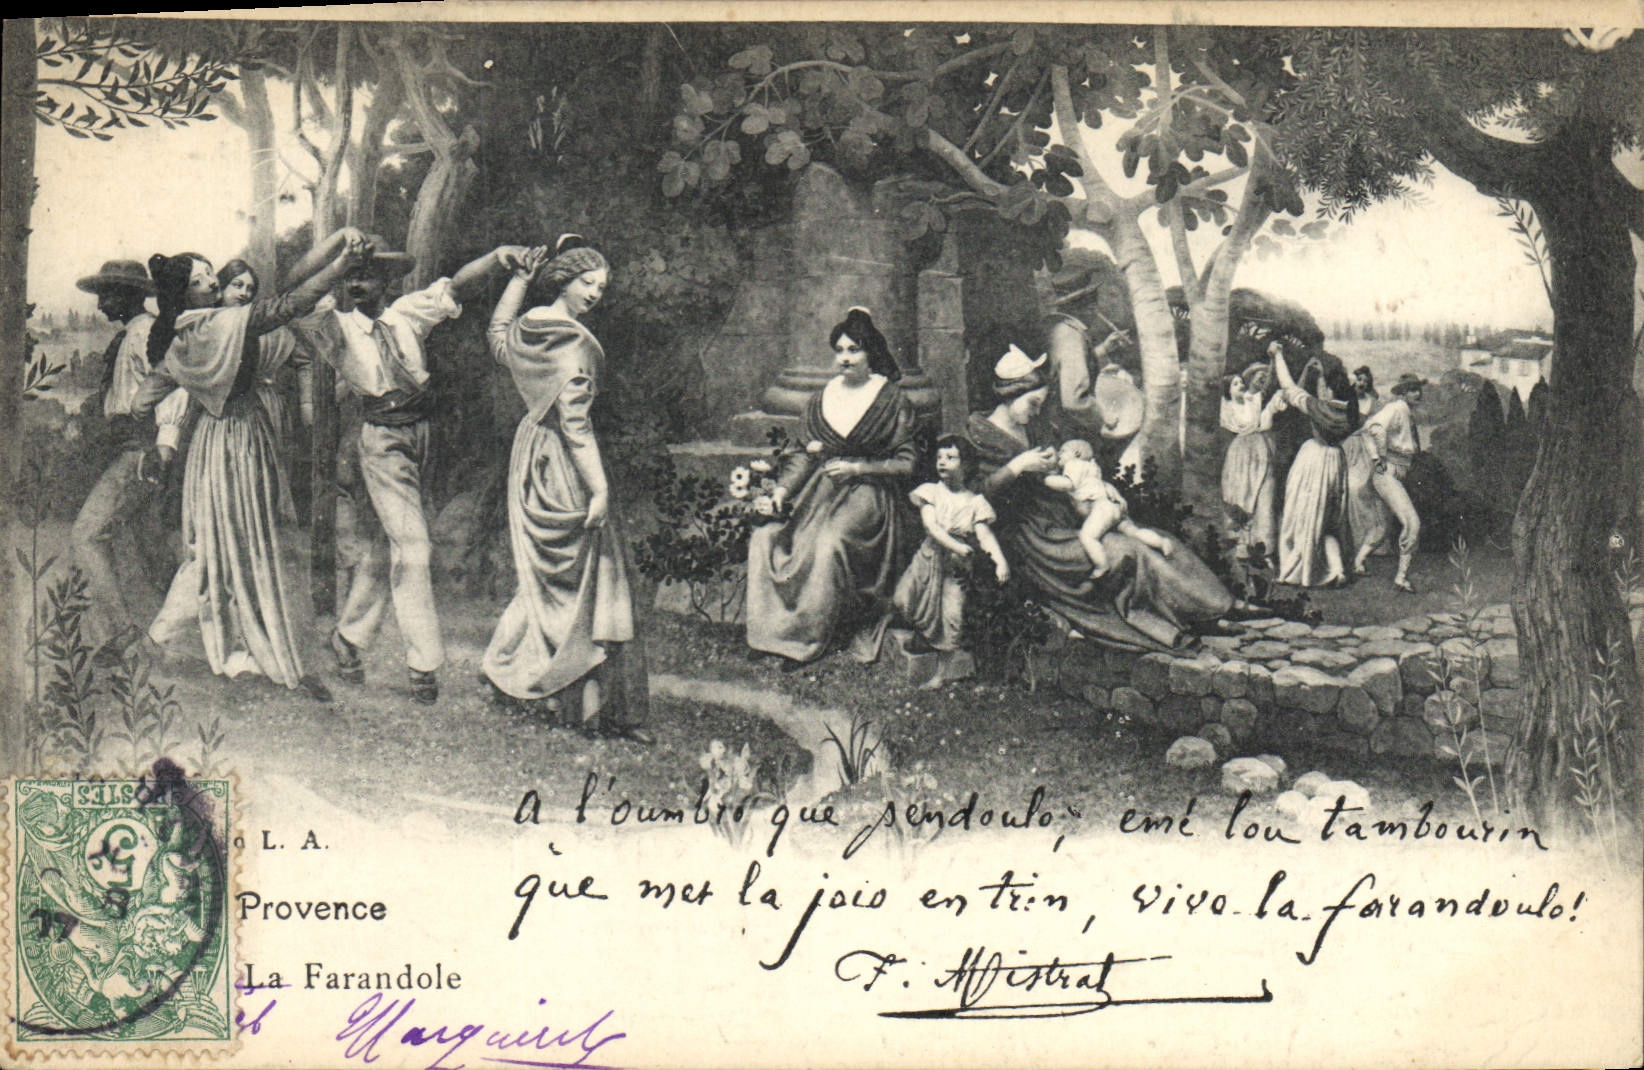 A l'oumbro que pendoulo, emé lou tambourin
que met la joio en trin, vivo la farandoulo!
F. Mistral
L. A.
Provence
La Farandole
POSTES
5